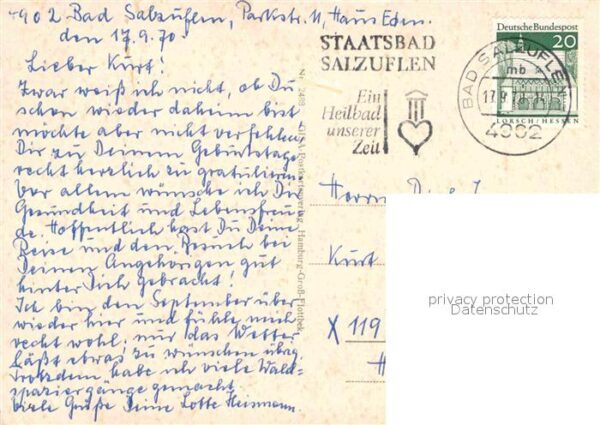 4902 Bad Salzuflen, Parkstr. 11, Haus Eden.
den 17.9.70
Lieber Kurt!
Zwar weiß ich nicht, ob Du
schon wieder daheim bist
möchte aber nicht verfehlen
Dir zu Deinem Geburtstage
recht herzlich zu gratulieren.
Vor allem wünsche ich Dir
Gesundheit und Lebensfreu-
de. Hoffentlich hast Du Deine
Reise und den Besuch bei
Deinen Angehörigen gut
hinter Dich gebracht!
Ich bin den September über
wieder hier und fühle mich
recht wohl, nur das Wetter
läßt etwas zu wünschen übrig.
Trotzdem habe ich viele Wald-
spaziergänge gemacht.
Viele Grüße Deine Lotte Heismann.
Nr. 2488 Postkartenverlag, Hamburg-Groß-Flottbek
STAATSBAD
SALZUFLEN
Ein
Heilbad
unserer
Zeit
BAD SALZUFLEN
mb
17.9.70
4902
Deutsche Bundespost
20
LORSCH/HESSEN
Herrn
Kurt
X 119
privacy protection
Datenschutz